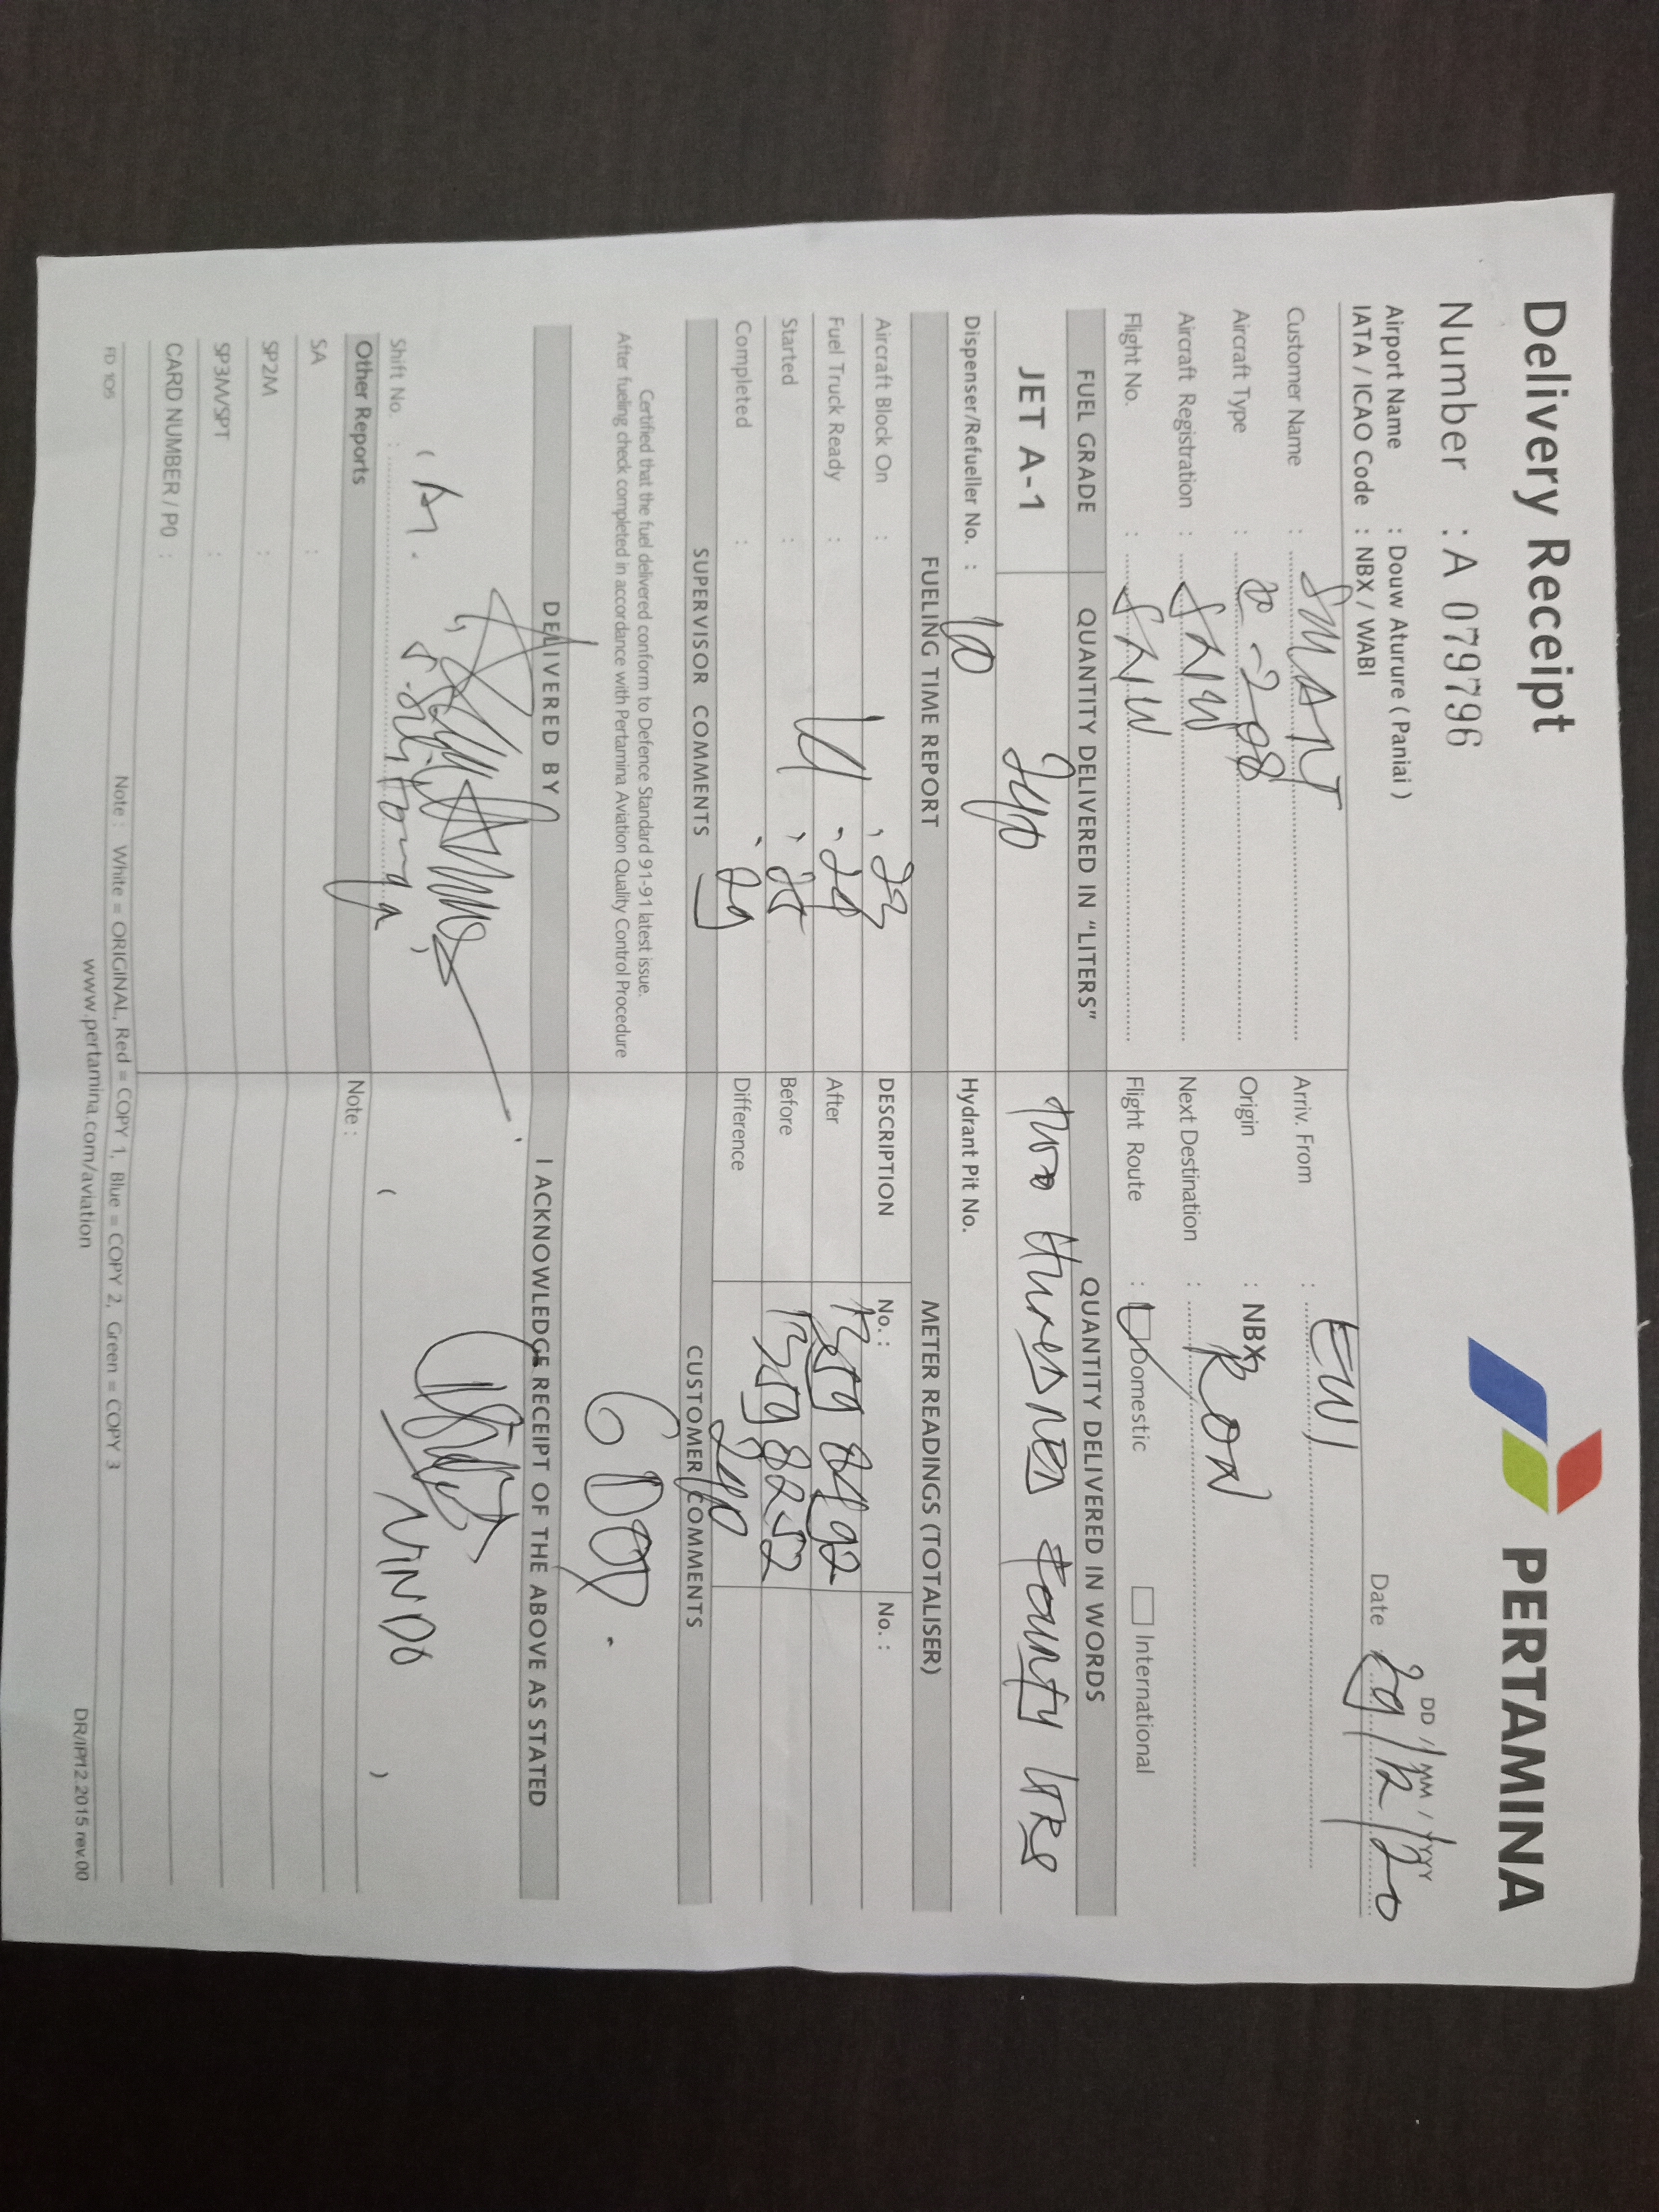 Delivery Receipt
PERTAMINA
Number : A 079796
DD / MM / YYYY
Date 29/12/20
Airport Name : Douw Aturure ( Paniai )
IATA / ICAO Code : NBX / WABI
Customer Name : SMART
Arriv. From : EWI
Aircraft Type : C-208
Origin : NBX
Aircraft Registration :
Next Destination : RON
Flight No. :
Flight Route : Domestic International
FUEL GRADE QUANTITY DELIVERED IN "LITERS" QUANTITY DELIVERED IN WORDS
JET A-1 240 Two Hundred Fourty LTRS
Dispenser/Refueller No. : 10 Hydrant Pit No.
FUELING TIME REPORT METER READINGS (TOTALISER)
Aircraft Block On : .23 DESCRIPTION No. : No. :
Fuel Truck Ready : .24 After 13598492
Started : .25 Before 13598252
Completed : .29 Difference 240
SUPERVISOR COMMENTS CUSTOMER COMMENTS
Certified that the fuel delivered conform to Defence Standard 91-91 latest issue.
After fueling check completed in accordance with Pertamina Aviation Quality Control Procedure
DELIVERED BY I ACKNOWLEDGE RECEIPT OF THE ABOVE AS STATED
NINDO
Shift No. :
Other Reports Note :
SA :
SP2M :
SP3M/SPT :
CARD NUMBER / P0 :
Note : White = ORIGINAL, Red = COPY 1, Blue = COPY 2, Green = COPY 3
FD 105 www.pertamina.com/aviation DR/IP/12.2015 rev.00